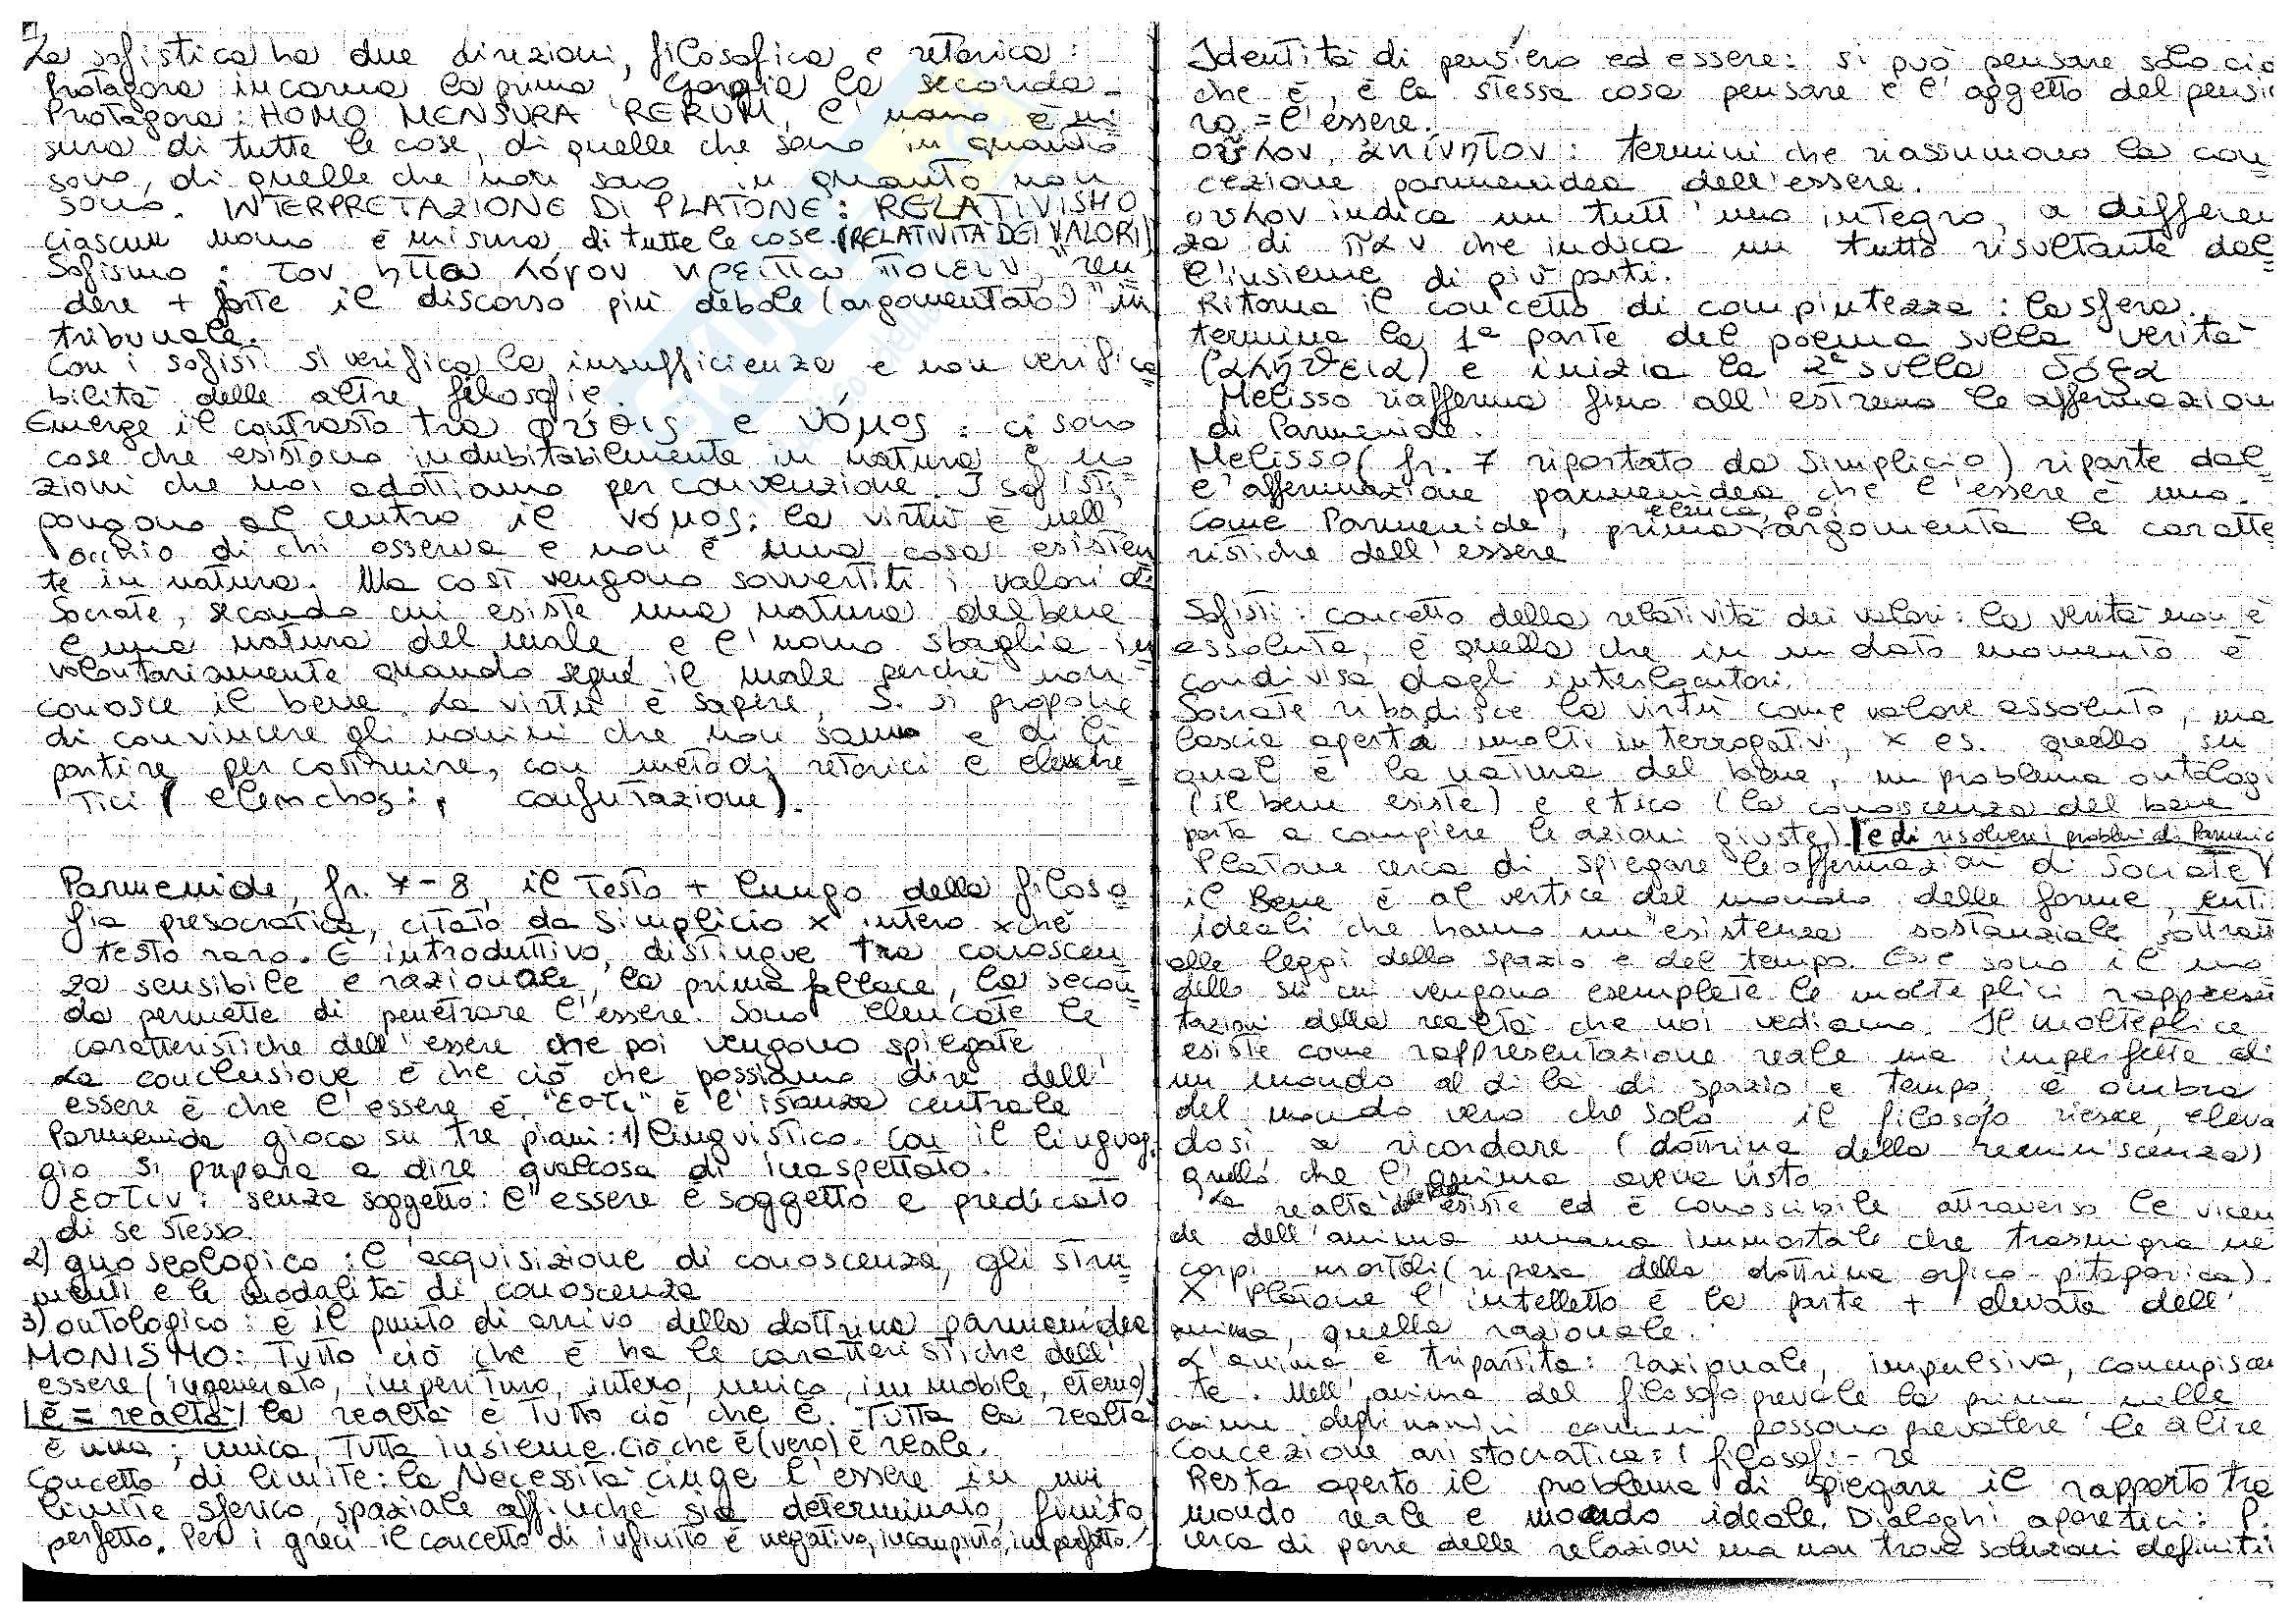 La sofistica ha due direzioni, filosofica e retorica:
Protagora incarna la prima, Gorgia la seconda.
Protagora: HOMO MENSURA RERUM, l'uomo è mi
sura di tutte le cose, di quelle che sono in quanto
sono, di quelle che non sono in quanto non
sono. INTERPRETAZIONE DI PLATONE: RELATIVISMO
ciascun uomo è misura di tutte le cose. (RELATIVITÀ DEI VALORI)
Sofismo: τον ηττω λόγον κρειττω ποιειν, "ren
dere + forte il discorso più debole (argomentato)" in
tribunale.
Con i sofisti si verifica la insufficienza e non verifica
bilità delle altre filosofie.
Emerge il contrasto tra φύσις e νόμος: ci sono
cose che esistono indubitabilmente in natura e no
zioni che noi adottiamo per convenzione. I sofisti
pongono al centro il νόμος: la virtù è nell'
occhio di chi osserva e non è una cosa esisten
te in natura. Ma così vengono sovvertiti i valori di
Socrate, secondo cui esiste una natura del bene
e una natura del male e l'uomo sbaglia in
volontariamente quando segue il male perché non
conosce il bene. La virtù è sapere, S. si propone
di convincere gli uomini che non sanno e di lì
partire per costruire, con metodi retorici e elenche
tici (elenchos: confutazione).
Parmenide, fr. 7-8, il testo + lungo della filoso
fia presocratica, citato da Simplicio x intero xché
testo raro. È introduttivo, distingue tra conoscen
za sensibile e razionale, la prima fallace, la secon
da permette di penetrare l'essere. Sono elencate le
caratteristiche dell'essere che poi vengono spiegate
La conclusione è che ciò che possiamo dire dell'
essere è che l'essere è. "Εστι" è l'istanza centrale
Parmenide gioca su tre piani: 1) linguistico. Con il linguag
gio si prepara a dire qualcosa di inaspettato.
εστιν: senza soggetto: l'essere è soggetto e predicato
di se stesso.
2) gnoseologico: l'acquisizione di conoscenza, gli stru
menti e le modalità di conoscenza
3) ontologico: è il punto di arrivo della dottrina parmenidea
MONISMO: Tutto ciò che è ha le caratteristiche dell'
essere (ingenerato, imperituro, intero, unico, immobile, eterno)
è = realtà / la realtà è tutto ciò che è. Tutta la realtà
è una, unica, tutta insieme. Ciò che è (vero) è reale.
Concetto di limite: la Necessità cinge l'essere in un
limite sferico, spaziale affinché sia determinato, finito,
perfetto. Per i greci il concetto di infinito è negativo, incompiuto, imperfetto.
Identità di pensiero ed essere: si può pensare solo ciò
che è, è la stessa cosa pensare e l'oggetto del pensie
ro = l'essere.
ουλον, ακίνητον: termini che riassumono la con
cezione parmenidea dell'essere.
ουλον indica un tutt'uno integro, a differen
za di παν che indica un tutto risultante dal
l'insieme di più parti.
Ritorna il concetto di compiutezza: la sfera.
termina la 1ª parte del poema sulla verità
(αλήθεια) e inizia la 2ª sulla δόξα
Melisso riafferma fino all'estremo le affermazioni
di Parmenide.
Melisso (fr. 7 riportato da Simplicio) riparte dal
l'affermazione parmenidea che l'essere è uno.
Come Parmenide, prima elenca, poi argomenta le caratte
ristiche dell'essere
Sofisti: concetto della relatività dei valori: la verità non è
assoluta, è quella che in un dato momento è
condivisa dagli interlocutori.
Socrate ribadisce la virtù come valore assoluto, ma
lascia aperti molti interrogativi, x es. quello su
qual è la natura del bene, un problema ontologi
(il bene esiste) e etico (la conoscenza del bene
porta a compiere le azioni giuste)
e di risolvere i problemi di Parmenid
Platone cerca di spiegare le affermazioni di Socrate
il Bene è al vertice del mondo delle forme, enti
ideali che hanno un'esistenza sostanziale sottratt
alle leggi dello spazio e del tempo. Esse sono il mo
dello su cui vengono esemplate le molteplici rappresen
tazioni della realtà che noi vediamo. Il molteplice
esiste come rappresentazione reale ma imperfetta di
un mondo al di là di spazio e tempo, è ombra
del mondo vero che solo il filosofo riesce, eleva
dosi a ricordare (dottrina della reminiscenza)
quello che l'anima aveva visto
La realtà esiste ed è conoscibile attraverso le vicen
de dell'anima umana immortale che trasmigra nei
corpi mortali (ripresa della dottrina orfico-pitagorica).
X Platone l'intelletto è la parte + elevata dell'
anima, quella razionale.
L'anima è tripartita: razionale, impulsiva, concupiscen
te. Nell'anima del filosofo prevale la prima nelle
anime degli uomini comuni possono prevalere le altre
Concezione aristocratica: i filosofi-re
Resta aperto il problema di spiegare il rapporto tra
mondo reale e mondo ideale. Dialoghi aporetici: P.
cerca di porre delle relazioni ma non trova soluzioni definiti